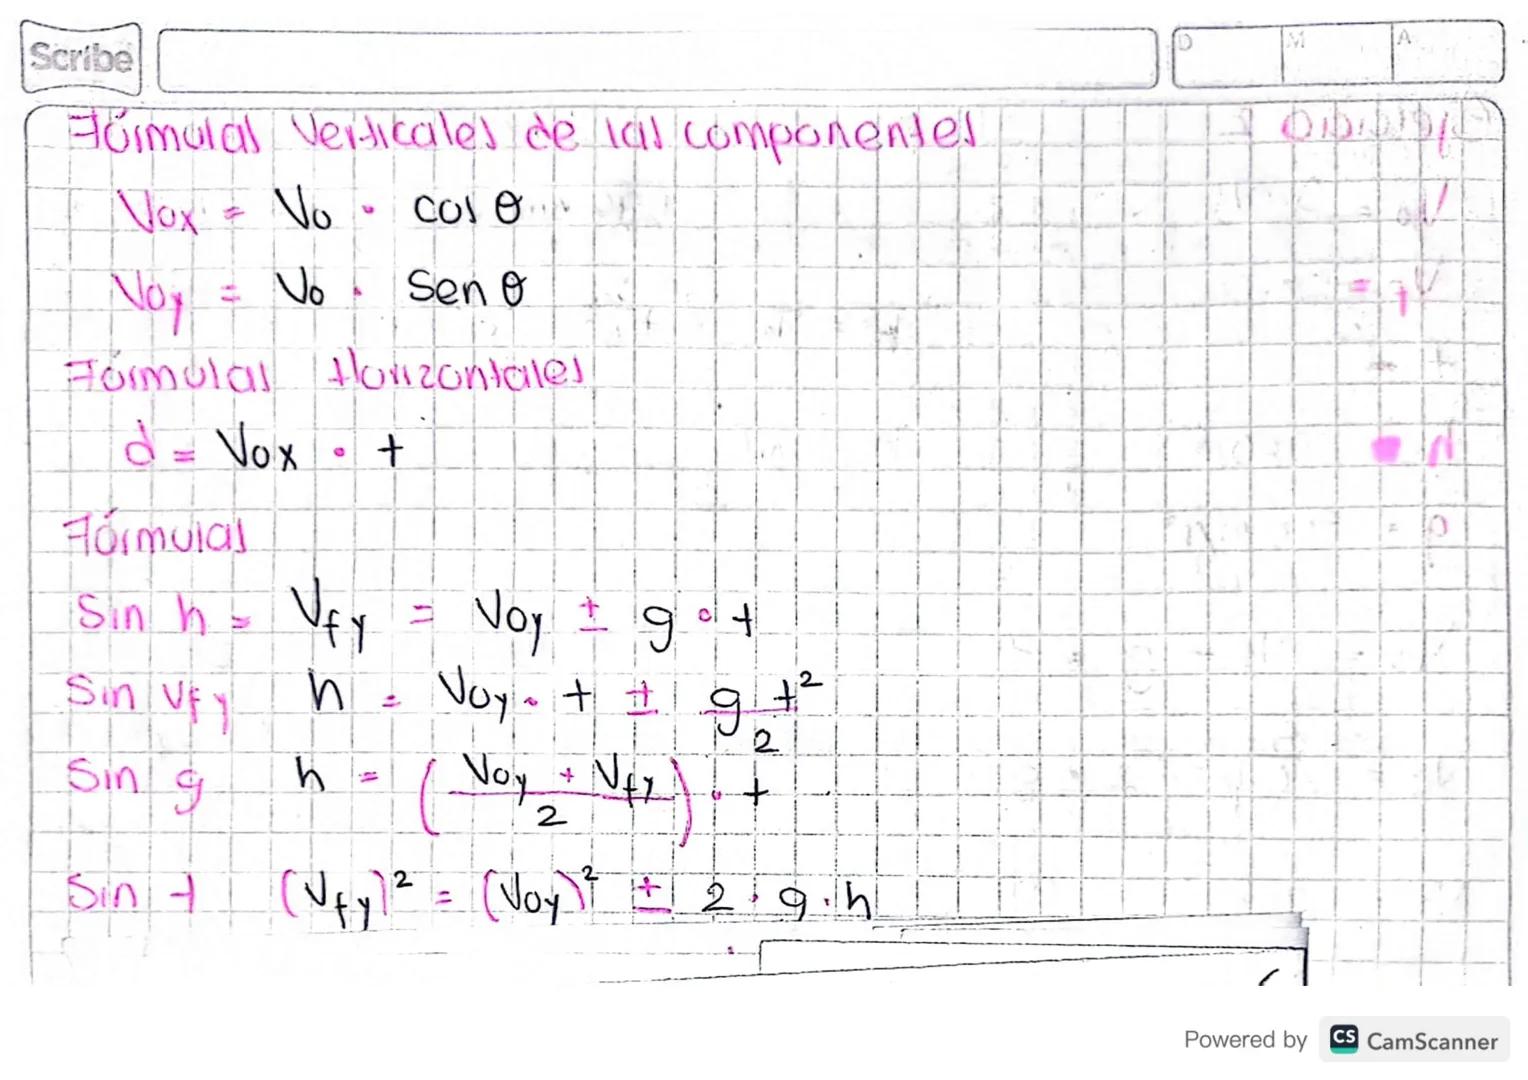 Scribe
D M A
Fórmulas Verticales de las componentes
Vox = Vo · cos θ
Voy = Vo · Sen θ
Fórmulas Horizontales
d = Vox · t
Fórmulas
Sin h = Vfy = Voy ± g · t
Sin Vfy h = Voy · t ± g t² / 2
Sin g h = ( Voy + Vfy / 2 ) · t
Sin t (Vfy)² = (Voy)² ± 2 · g · h
Powered by CS CamScanner